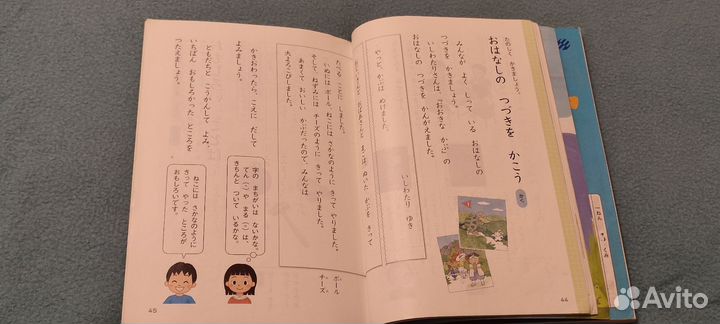 たのしく かきましょう。
おはなしの つづきを かこう
かく
みんなが よく しって いる おはなしの
つづきを かきましょう。
いしわたりさんは、「おおきな かぶ」の
おはなしの つづきを かんがえました。
いしわたり ゆき
やっと、かぶは ぬけました。
おじいさんと おばあさんと まごは、ぬいた かぶを きって
たべる ことに しました。
いぬには ボール、ねこには さかなのように きって やりました。
そして、ねずみには チーズのように きって やりました。
あまくて おいしい かぶだったので、みんなは
大よろこびしました。
ボール
チーズ
かきおわったら、こえに だして
よみましょう。
ともだちと こうかんして よみ、
いちばん おもしろかった ところを
つたえましょう。
字の まちがいは ないかな。
てん(、)や まる(。)は、
きちんと ついて いるかな。
ねこには さかなのように
きって やった ところが
おもしろいです。
45
44
Avito